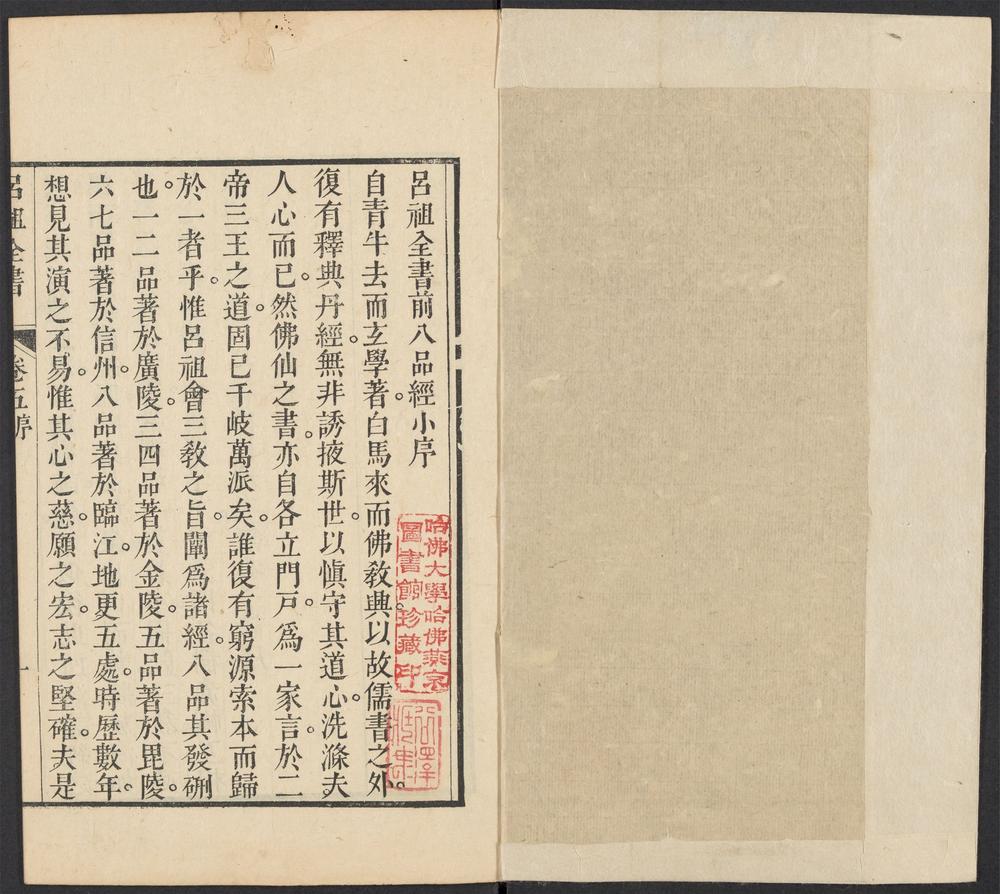 呂祖全書前八品經小序
自青牛去而玄學著。白馬來而佛教興。以故儒書之外。
復有釋典丹經。無非誘掖斯世。以愼守其道心。洗滌夫
人心而已。然佛仙之書。亦自各立門戸。爲一家言。於二
帝三王之道。固已千岐萬派矣。誰復有窮源索本而歸
於一者乎。惟呂祖會三敎之旨。闡爲諸經。八品其發硎
也。一二品著於廣陵。三四品著於金陵。五品著於毘陵。
六七品著於信州。八品著於臨江。地更五處。時歷數年。
想見其演之不易。惟其心之慈。願之宏。志之堅確。夫是
呂祖全書
卷五序
一
哈佛大學哈佛燕京
圖書館珍藏印